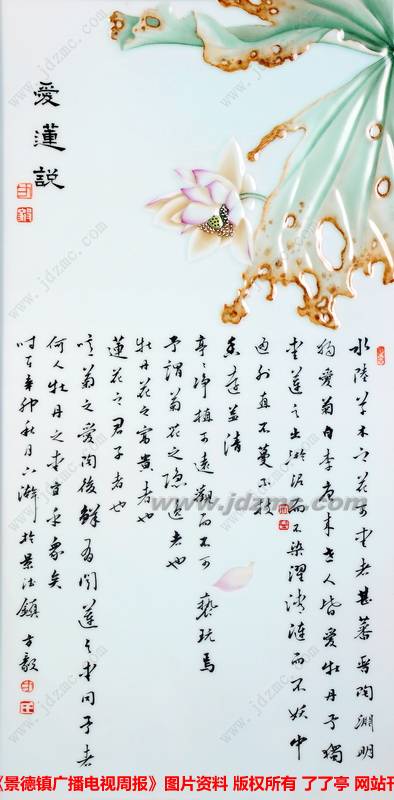 愛蓮説
水陸草木之花可愛者甚蕃晉陶淵明
獨愛菊自李唐來世人皆愛牡丹予獨
愛蓮之出淤泥而不染濯清漣而不妖中
通外直不蔓不枝
香遠益清
亭亭净植可遠觀而不可褻玩焉
予謂菊花之隱逸者也
牡丹花之富貴者也
蓮花之君子者也
噫菊之愛陶後鮮有聞蓮之愛同予者
何人牡丹之愛宜乎衆矣
時在辛卯秋月下澣於景德鎮方毅
www.jdzmc.com
《景德镇广播电视周报》图片资料 版权所有 了了亭 网站刊